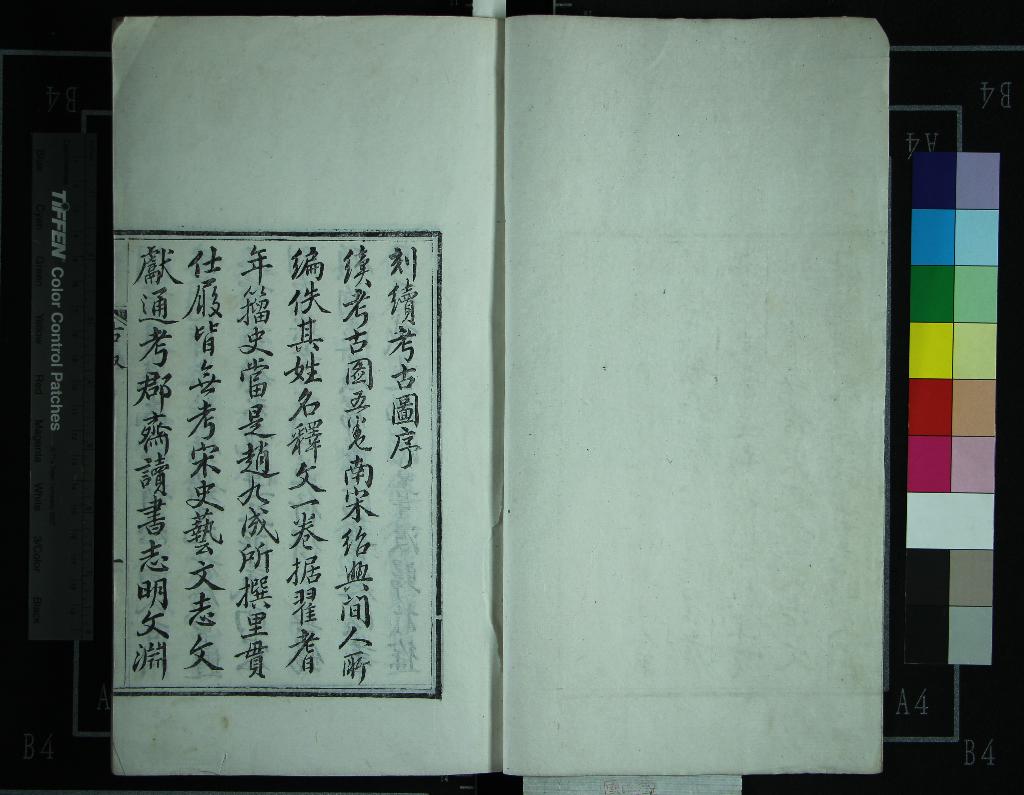 刻續考古圖序
續考古圖五卷南宋紹興間人所
編佚其姓名釋文一卷据翟耆
年籀史當是趙九成所撰里貫
仕履皆無考宋史藝文志文
獻通考郡齋讀書志明文淵
TIFFEN Color Control Patches
Blue Cyan Green Yellow Red Magenta White 3/Color Black
B4
A4
B4
A4
B4
B4